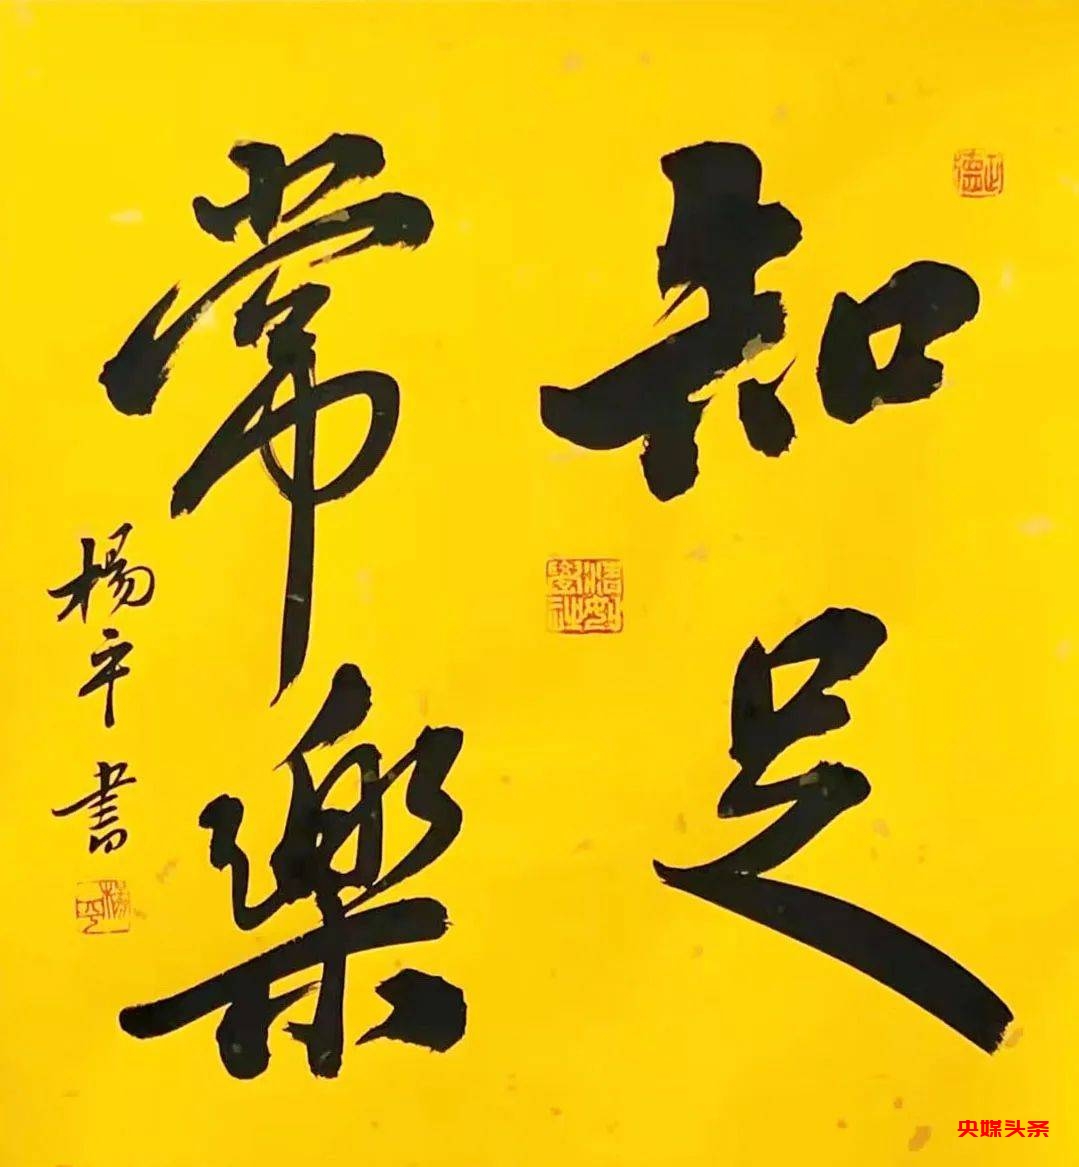 知足
常樂
楊平書
楊平
央媒头条